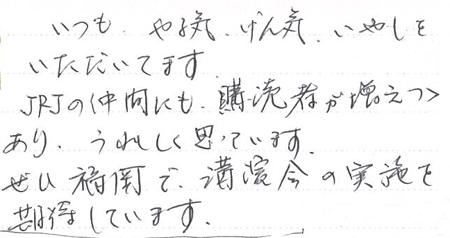 いつも、やる気、げん気、いやしを
いただいてます
JRJの仲間にも、購読者が増えつつ
あり、うれしく思っています。
ぜひ福岡で、講演会の実施を
期待しています。